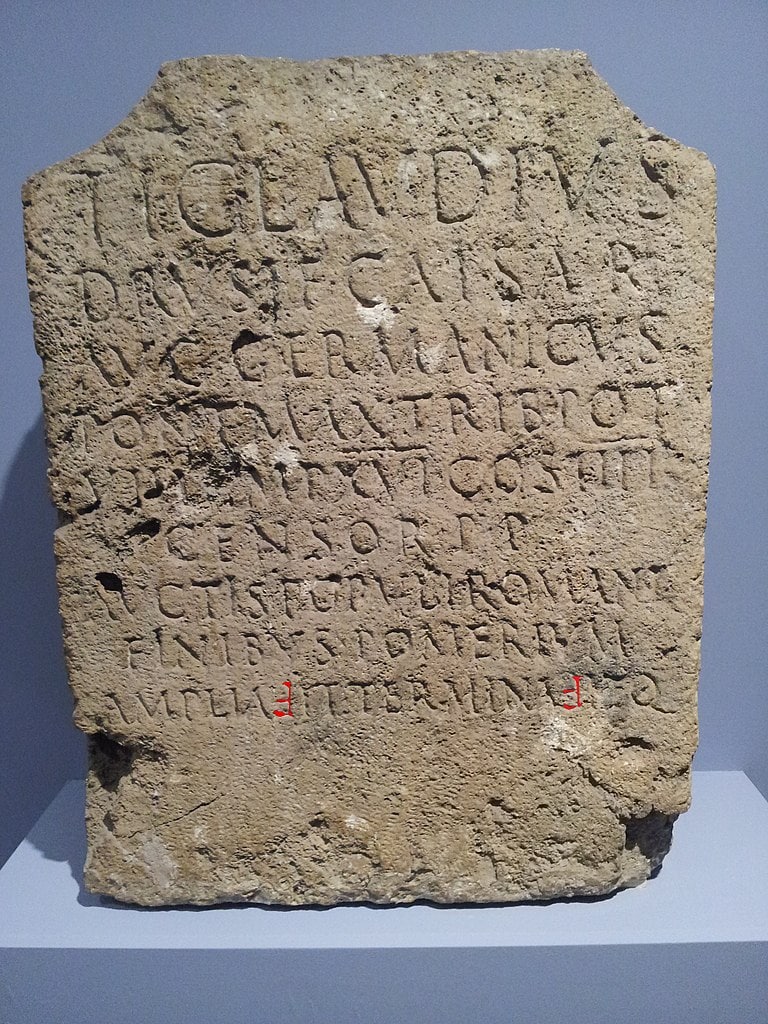 TI CLAVDIVS
DRVSI F CAISAR
AVG GERMANICVS
PONT MAX TRIB POT
VIIII IMP XVI COS IIII
CENSOR P P
AVCTIS POPVLI ROMANI
FINIBVS POMERIVM
AMPLIAℲIT TERMINAℲITQ